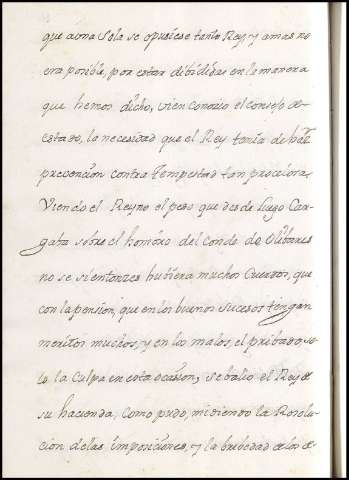 que aona Sola se opusiese tanto Rey, y amas no
era posible, por estar dibididas en la manera
que hemos dicho, vien conocio el consejo de
estado, la necesidad que el Rey tenia de haer
prevencion contra Tempestad tan procelosa,
Viendo el Reyno el peso que desde luego Car-
gaba sobre el hombro del conde de Olibares
no se si entonzes hubiera muchos Cuerdos, que
con la pension, que en los buenos sucesos tengan
meritos muchos, y en los malos, el pribado so-
lo la Culpa en esta ocasion, se balio el Rey de
su hacienda, como pudo, midiendo la Resolu-
cion delas imposiciones, y la brebedad de los de-